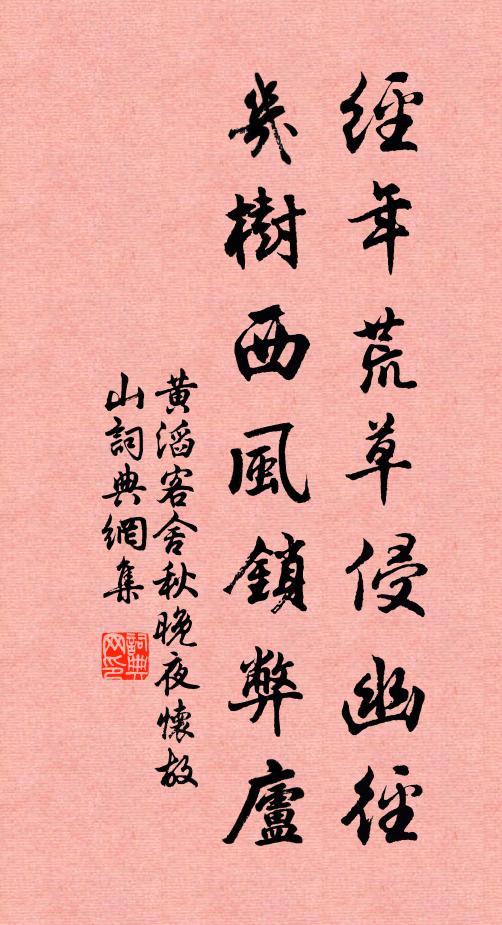 經年荒草侵幽徑
幾樹西風鎖弊廬
黄滔客舍秋晚夜懷故
山詞典網集
詞典網印